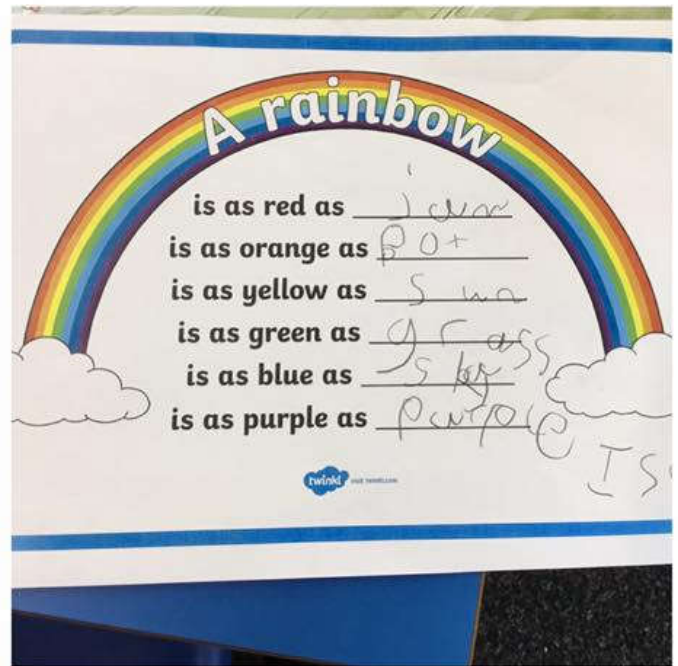 A rainbow
is as red as jam
is as orange as Pot
is as yellow as sun
is as green as grass
is as blue as sky
is as purple as Purple Is
twinkl visit twinkl.com